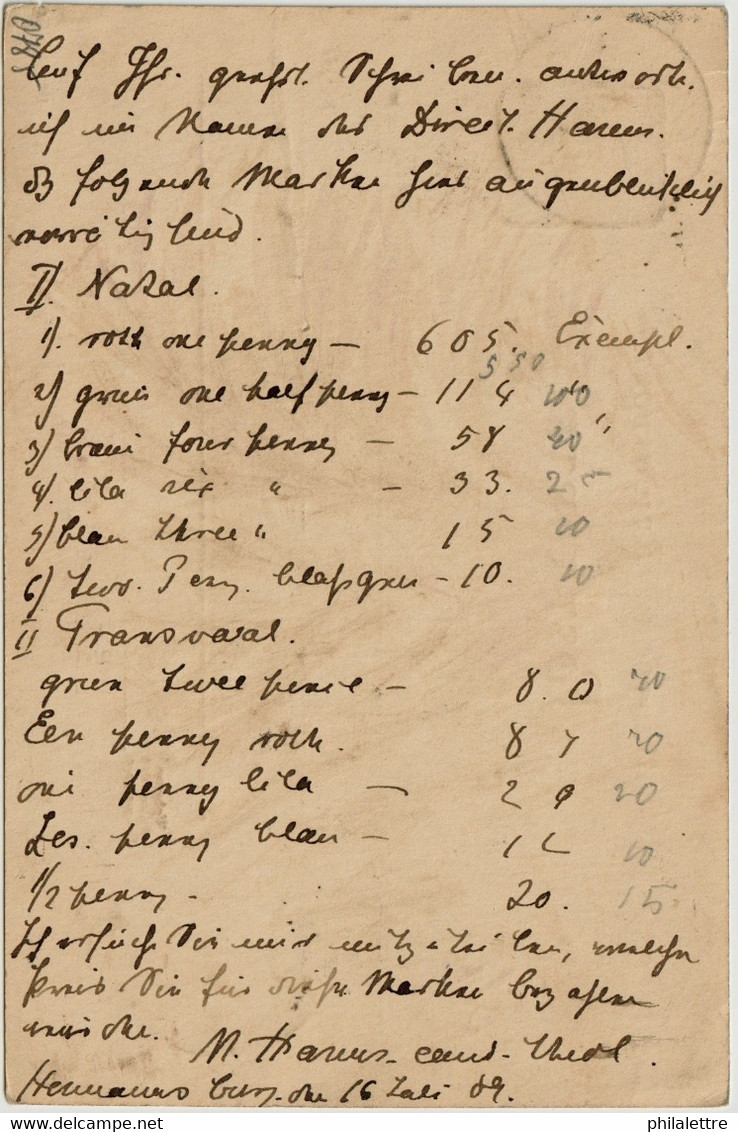 Auf Ihr. geehrt. Schreiben. antworte.
ich im Namen des Direct. Harms.
daß folgende Marken hier augenblicklich
vorrätig sind.
I). Natal.
1). roth one penny — 605. Exempl.
550
2) grün one half penny — 114 " 100
3) braun four penny — 58 " 40
4). lila six " — 33. 25
5) blau three " 15 10
6) two. Penny. blaßgrün — 10. 10
II Transvaal.
grün twee pence — 8.0 70
Een penny roth. 87
one penny lila — 20
Zes. penny blau — 10
1/2 penny — 20. 15
Ich ersuche Sie mir mitzuteilen, welchen
Preis Sie für diese Marken bezahlen
würden.
M. Harms. cand. theol.
Hermannsburg. den 16 Juli 89.
philalettre